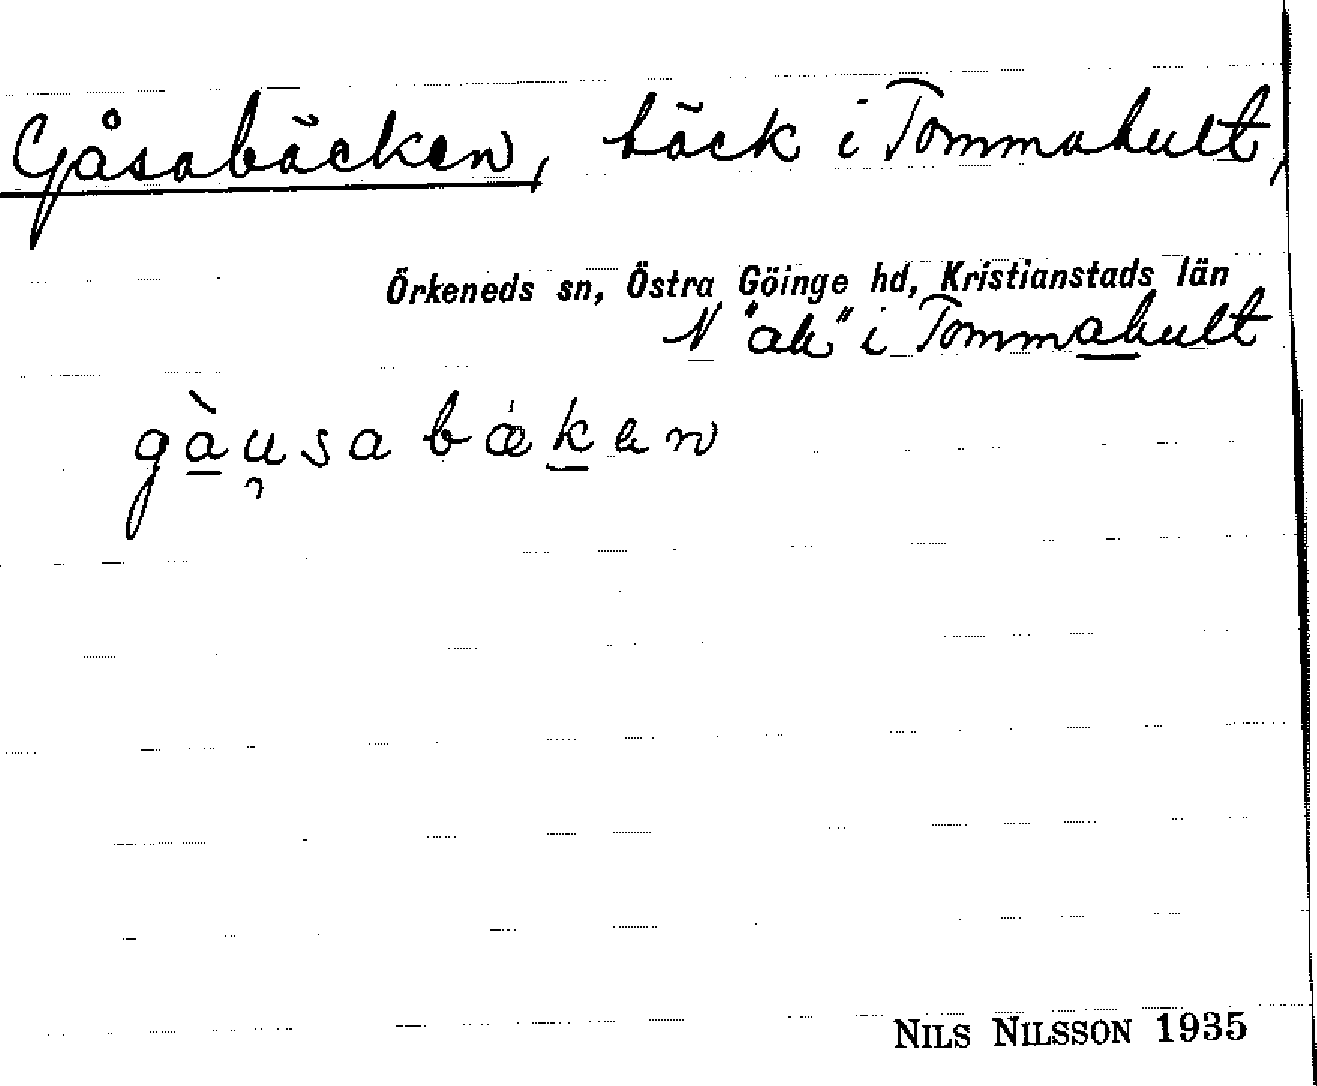 Gåsabäcken, bäck i Tommahult,
Örkeneds sn, Östra Göinge hd, Kristianstads län
N "ah" i Tommahult
gàu̯sabǽken
NILS NILSSON 1935